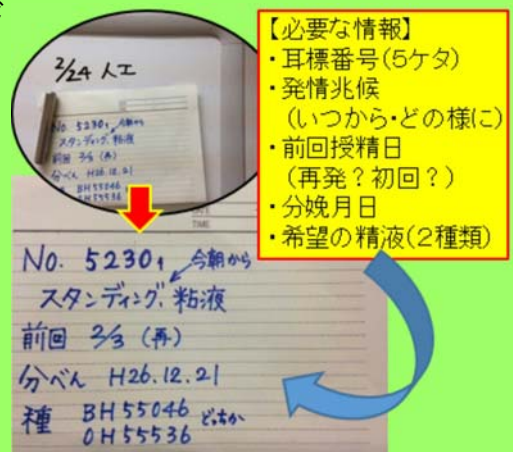 2/24 人工
No. 52301 今朝から
スタンディング、粘液
前回 2/3 (再)
分べん H26.12.21
種 BH55046
OH55536
【必要な情報】
・耳標番号(5ケタ)
・発情兆候
(いつから・どの様に)
・前回授精日
(再発?初回?)
・分娩月日
・希望の精液(2種類)
DATE
TIME
No. 52301 今朝から
スタンディング、粘液
前回 2/3 (再)
分べん H26.12.21
種 BH55046 どっちか
OH55536